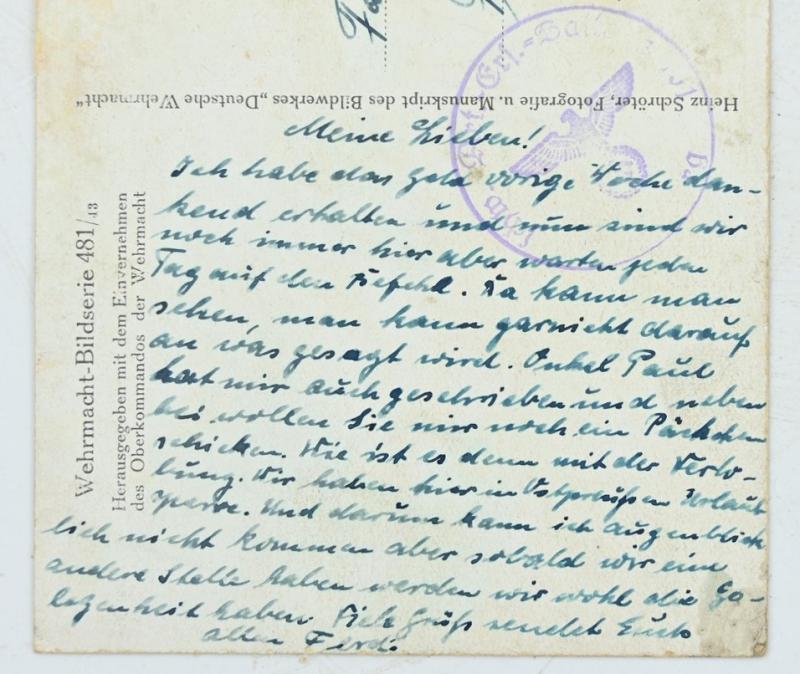 Heinz Schröter, Fotografie u. Manuskript des Bildwerkes „Deutsche Wehrmacht“
Wehrmacht-Bildserie 481/43
Herausgegeben mit dem Einvernehmen
des Oberkommandos der Wehrmacht
Meine Lieben!
Ich habe das geld vorige Woche dan-
kend erhalten und nun sind wir
noch immer hier aber warten jeden
Tag auf den Befehl. Da kann man
sehen, man kann garnicht darauf
an was gesagt wird. Onkel Paul
hat mir auch geschrieben und neben
bei wollen Sie mir noch ein Päckchen
schicken. Wie ist es denn mit der Verlo-
bung. Wir haben hier in Ostpreußen Urlaub
sperre. Und darum kann ich augenblick
lich nicht kommen aber sobald wir eine
andere Stelle haben werden wir wohl die Ge-
legenheit haben. Viele Grüße sendet Euch
allen Ferd.